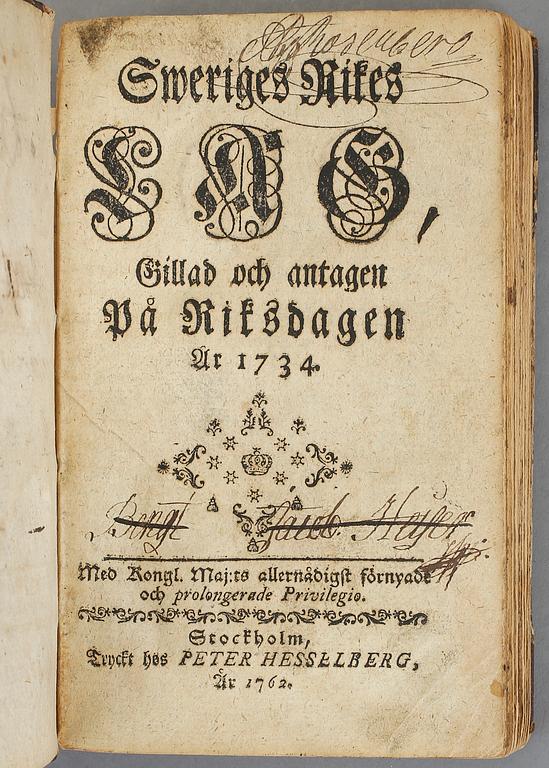 Rosenberg
Sweriges Rikes
LAG,
Gillad och antagen
På Riksdagen
År 1734.
Bengt Jacob Heijer
Med Kongl. Maj:ts allernådigst förnyade
och prolongerade Privilegio.
Stockholm,
Tryckt hos PETER HESSELBERG,
År 1762.